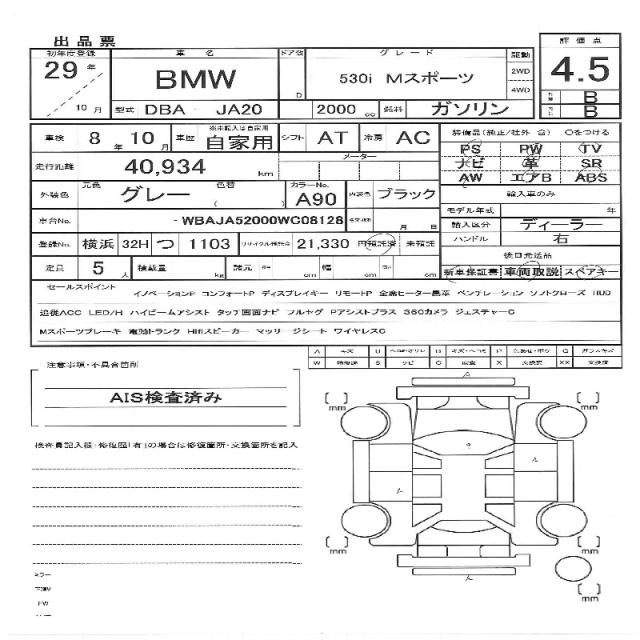 出品票
初年度登録 車名 ドア数 グレード 駆動 評価点
29年 BMW D 530i Mスポーツ 2WD 4WD 4.5
10月 型式 DBA - JA20 2000cc 燃料 ガソリン B B
車検 8年10月 車歴 ※未記入は自家用 自家用 シフト AT 冷房 AC 装備品(純正/社外 含) ○をつける
PS PW TV
走行距離 40,934 km メーター ナビ 革 SR
AW エアB ABS
外装色 元色 グレー 色替 カラーNo. A90 内装色 ブラック 輸入車のみ
モデル年式 年
車台No. -WBAJA52000WC08128 月 日 輸入区分 ディーラー
登録No. 横浜 32H つ 1103 リサイクル預託金 21,330円 預託済 未預託 ハンドル 右
定員 5人 積載量 kg 諸元 cm 幅 cm cm 後日発送品
新車保証書 車両取説 スペアキー
セールスポイント
イノベーションP コンフォートP ディスプレイキー リモートP 全席ヒーター黒革 ベンチレーション ソフトクローズ HUD
追従ACC LED/H ハイビームアシスト タッチ画面ナビ フルセグ Pアシストプラス 360カメラ ジェスチャーC
Mスポーツブレーキ 電動トランク Hifiスピーカー マッサージシート ワイヤレスC
A キズ U B キズ・ヘコミ P C ガラスキズ
W S サビ C 腐食 X 交換要 XX 交換済
注意事項・不具合箇所
AIS検査済み
検査員記入欄・修復歴「有」の場合は修復箇所・交換箇所を記入
mm mm
mm mm
ミラー
FW
mm